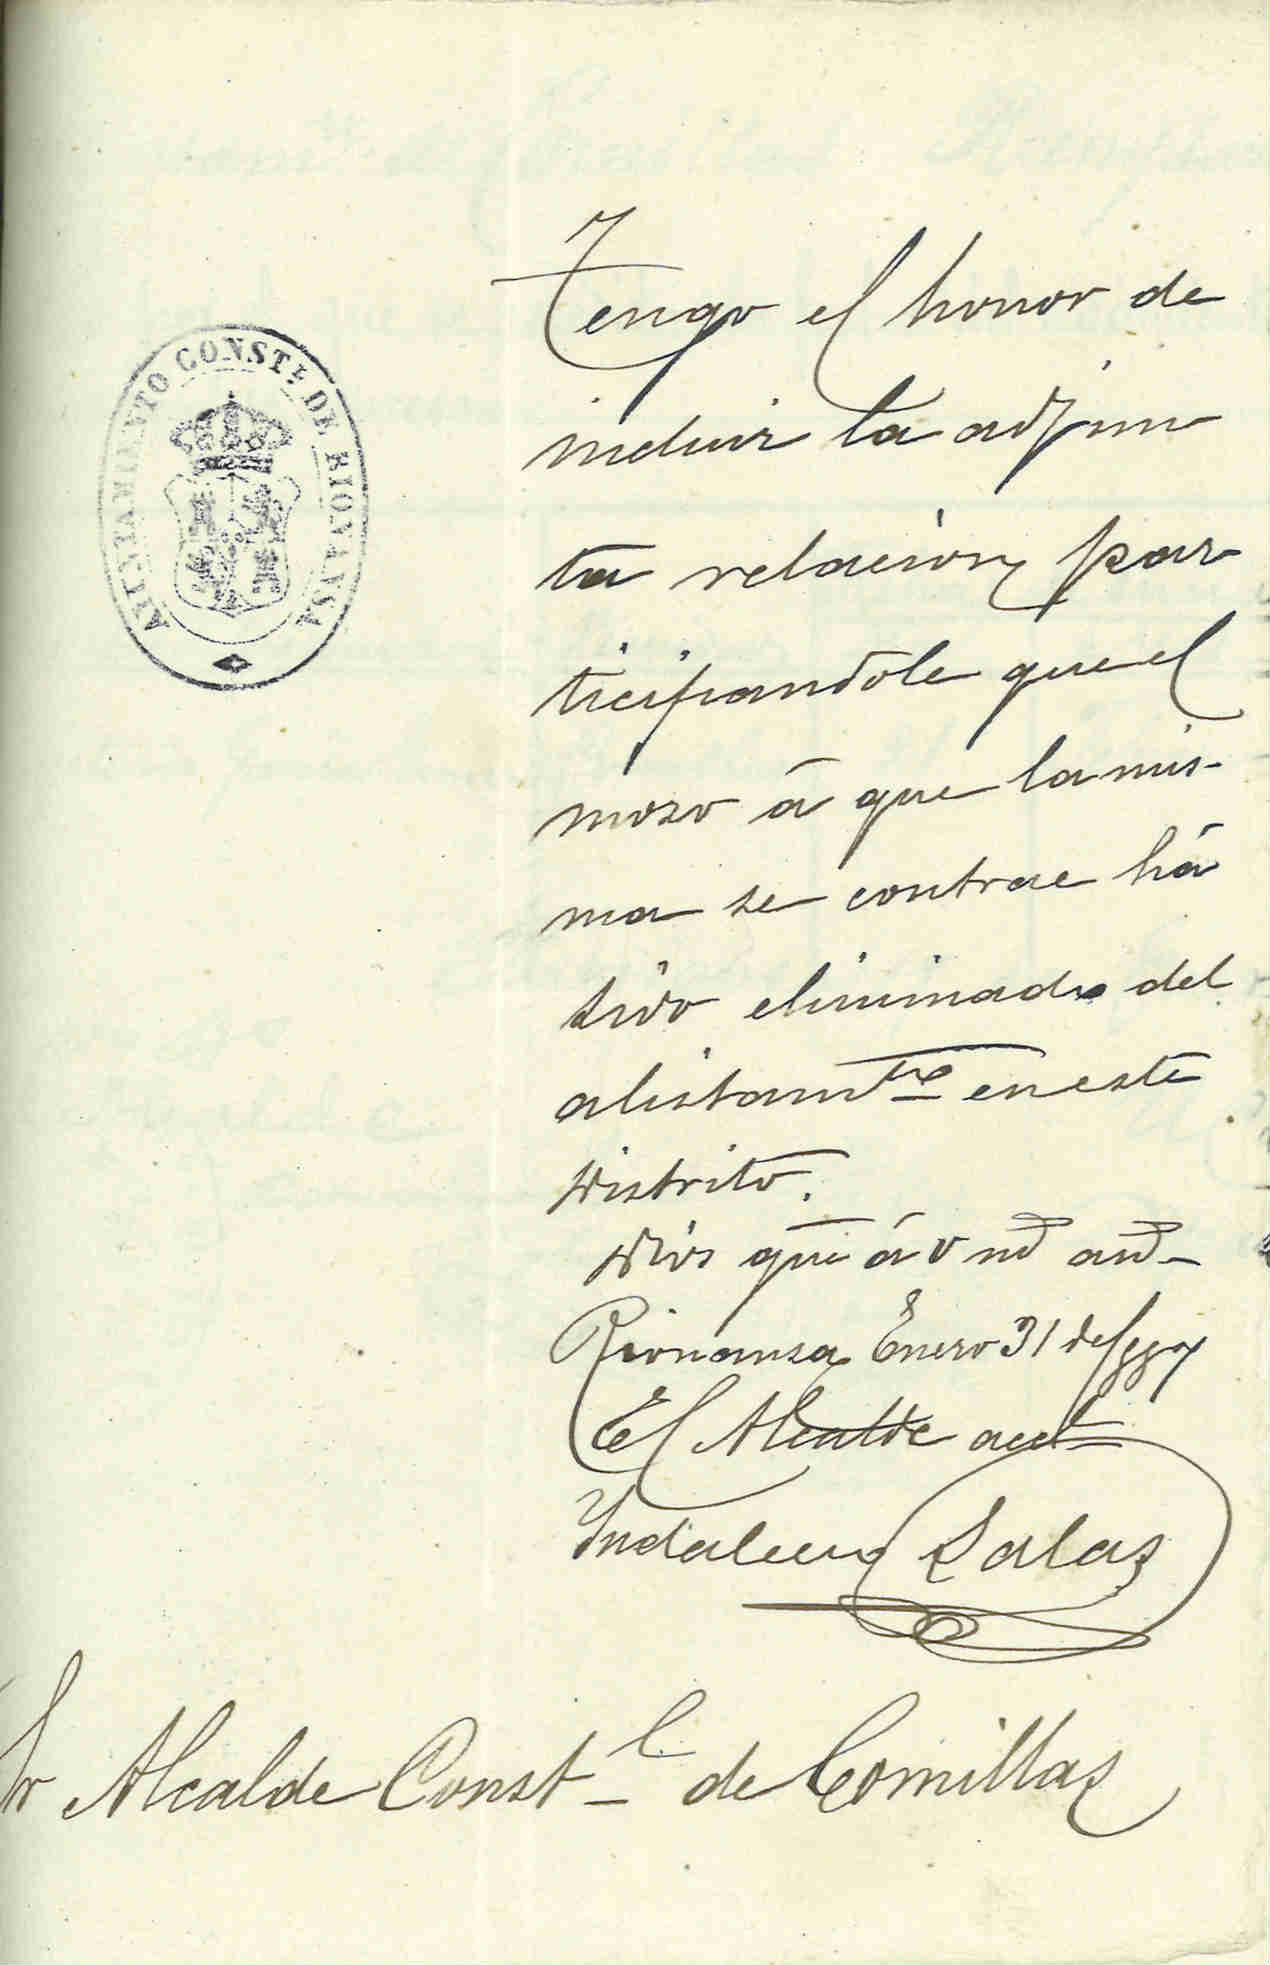 AYUNTAMIENTO CONST.L DE RIONANSA
Tengo el honor de
incluir la adjun
ta relacion par
ticipandole que el
mozo á que la mis-
ma se contrae há
sido eliminado del
alistamto en este
Distrito.
Dios gue á V md and-
Rionansa Enero 31 de
El Alcalde actl
Yndalecio Salas
Sr Alcalde Const.l de Comillas